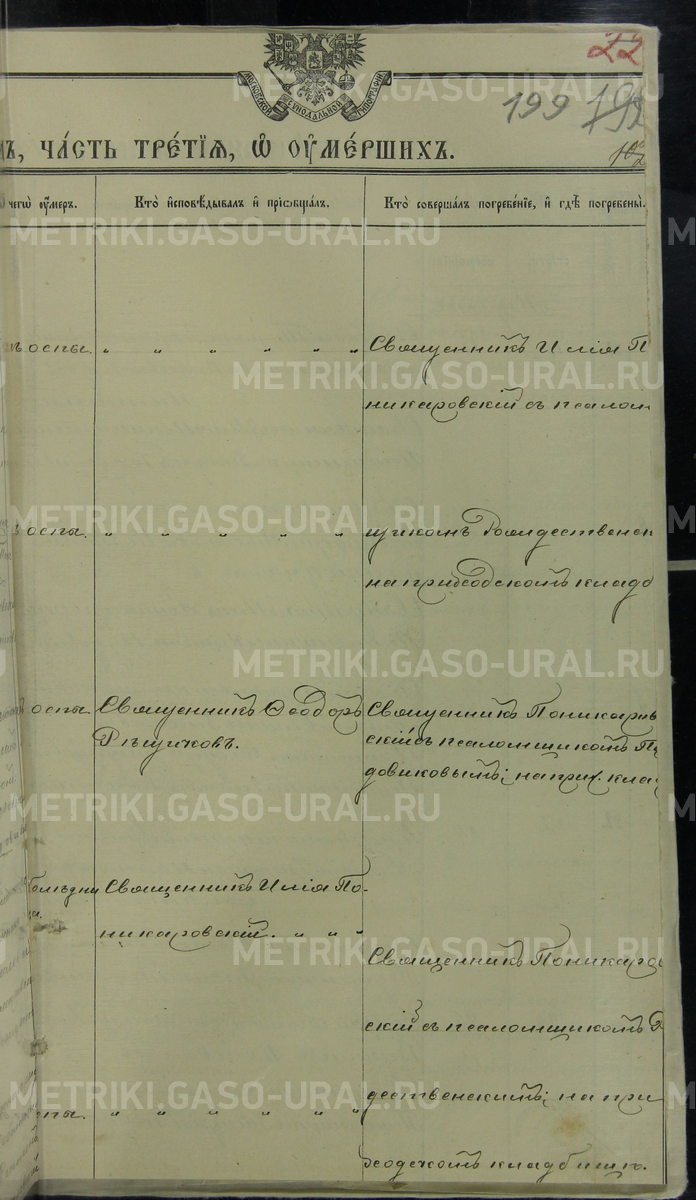 22
199
МОСКОВСКОЙ СѴНОДАЛЬНОЙ ТИПОГРАФІИ
ЧА́СТЬ ТРЕ́ТІѦ, Ѡ ОУМЕ́РШИХЪ.
чегѡ̀ оу́меръ.
Кто̀ и҆сповѣ́дывалъ и҆ прїѡбща́лъ.
Кто̀ соверша́лъ погребе́нїе, и҆ гдѣ̀ погребены̀.
оспы. " " " " " " Священникъ Илія П
никаровскій съ псалом
оспы. " " " " " щикомъ Рождественск
на приходскомъ кладб
оспы Священникъ Ѳеодоръ Священникъ Поникаров
Рѣшчковъ.
скій съ псаломщикомъ
довиковымъ; на прих. клад
Священникъ Илія По-
никаровскій. " " "
Священникъ Поникаро
скій съ псаломщикомъ Р
" " " " " "
дественскимъ; на при
ходскомъ кладбищѣ.
METRIKI.GASO-URAL.RU